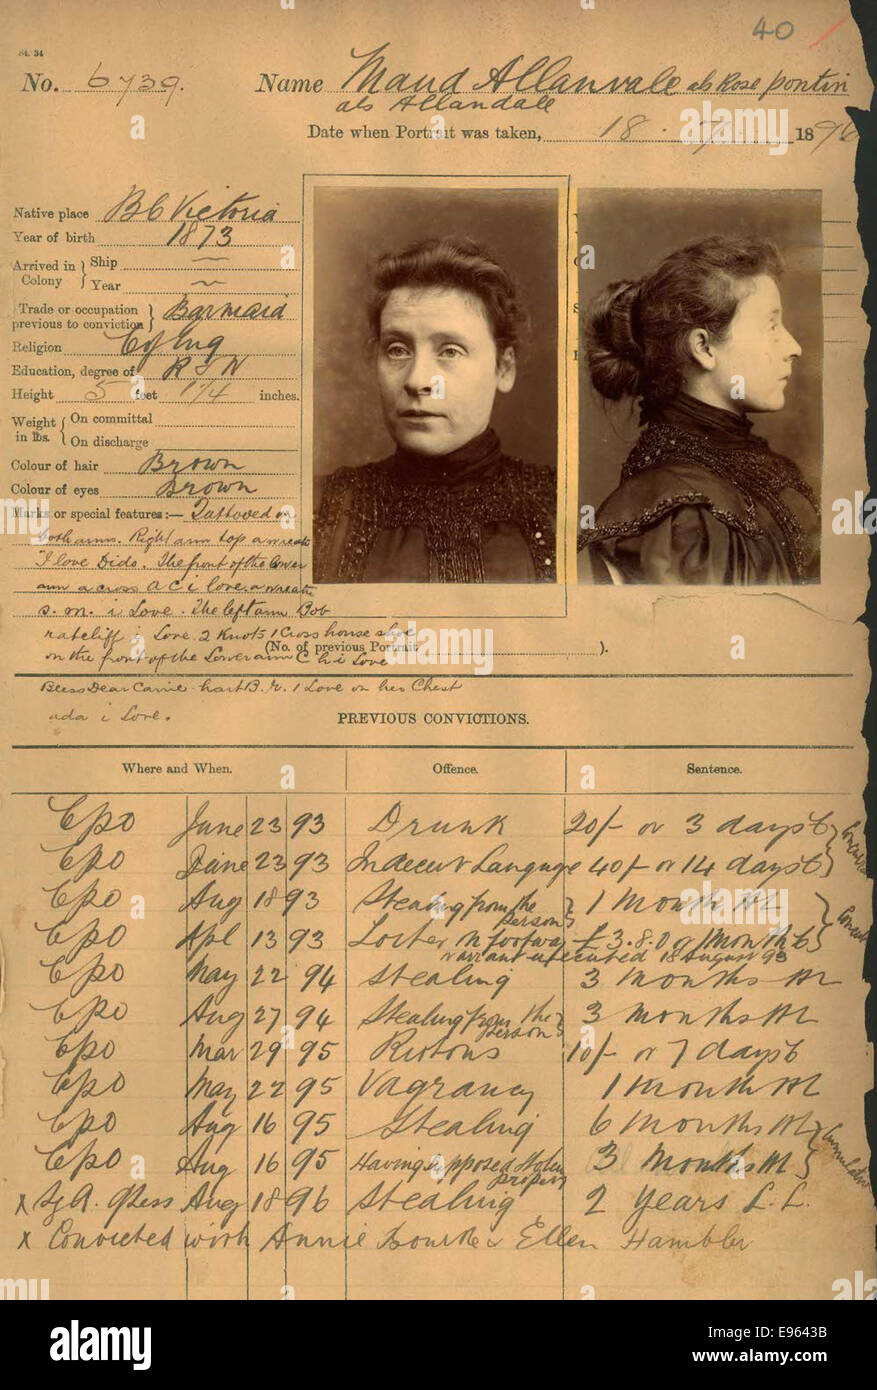 40
St. 34
No. 6739. Name Maud Allanvale als Rose Pontin
als Allandale
Date when Portrait was taken, 18 . 7 . 1896
Native place B C Victoria
Year of birth 1873
Arrived in Colony } Ship ~
Year ~
Trade or occupation previous to conviction } Barmaid
Religion C of Eng
Education, degree of R & W
Height 5 feet 1 1/4 inches.
Weight in lbs. { On committal
On discharge
Colour of hair Brown
Colour of eyes Brown
Marks or special features:— Tattooed on
both arms. Right arm top a wreath
"I love Dido. The front of the lower
arm a cross A C i love. a wreath
S. M. i Love. The left arm Bob
ratcliff i Love. 2 Knots 1 Cross horse shoe
(No. of previous Portrait ).
on the front of the Lower arm C h i Love
Bless Dear Carrie hart B. r. I Love on her Chest
ada i Love.
PREVIOUS CONVICTIONS.
Where and When. Offence. Sentence.
C p o June 23 93 Drunk 20/- or 3 days
C p o June 23 93 Indecent Language 40/- or 14 days
C p o Aug 18 93 Stealing from the person 1 Month HL
C p o Apl 13 93 Loiter on footway £3.8.0 or 1 month
warrant executed 18 August 93
C p o May 22 94 Stealing 3 Months HL
C p o Aug 27 94 Stealing from the person 3 Months HL
C p o Mar 29 95 Riotous 10/- or 7 days
C p o May 22 95 Vagrancy 1 Month HL
C p o Aug 16 95 Stealing 6 Months HL } Cumulative
C p o Aug 16 95 Having supposed stolen property 3 Months HL
x Aug 18 96 Stealing 2 years L. L.
x Convicted with Annie Bourke & Ellen Hambler
alamy
Image ID: E9643B
www.alamy.com